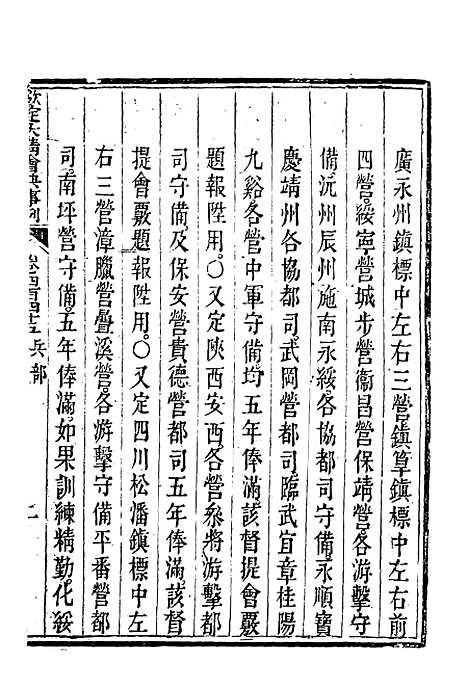 廣永州鎮標中左右三營鎮筸鎮標中左右前
四營綏寧營城步營衞昌營保靖營各游擊守
備沅州辰州施南永綏各協都司守備永順寶
慶靖州各協都司武岡營都司臨武宜章桂陽
九谿各營中軍守備均五年俸滿該督提會覈
題報陞用○又定陝西安西各營叅將游擊都
司守備及保安營貴德營都司五年俸滿該督
提會覈題報陞用○又定四川松潘鎮標中左
右三營漳臘營疊溪營各游擊守備平番營都
司南坪營守備五年俸滿如果訓練精勤化綏
欽定大清會典事例 卷四百四十五 兵部 二